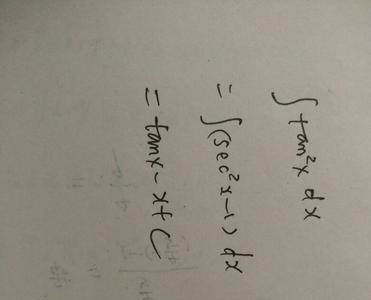 ∫ tan²x dx
= ∫(sec²x-1) dx
= tanx - x + C